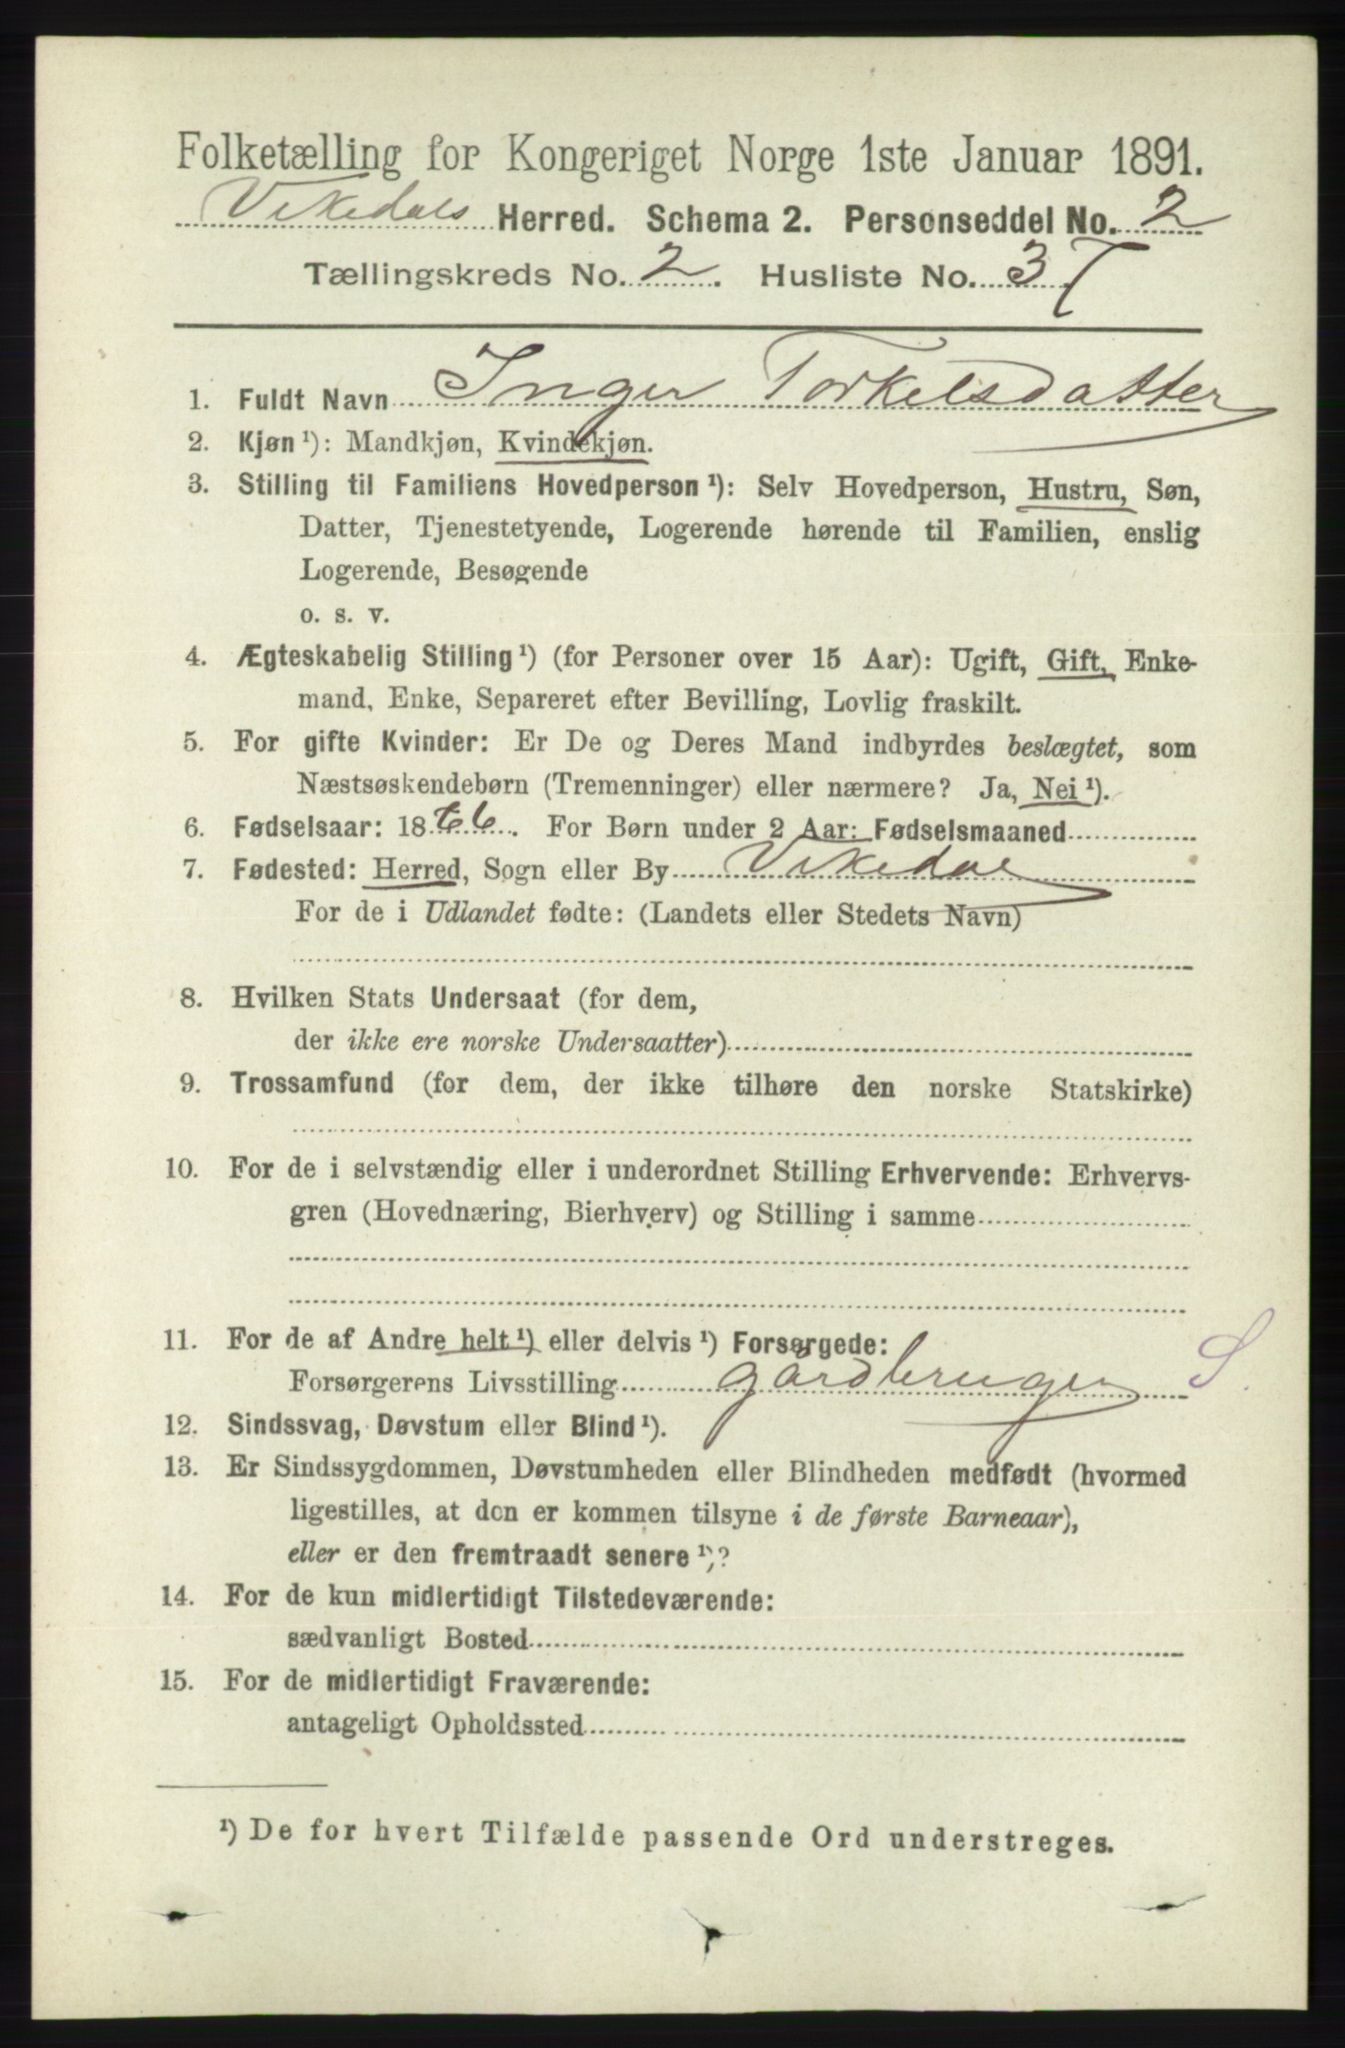 Folketælling for Kongeriget Norge 1ste Januar 1891.
Vikedals Herred. Schema 2. Personseddel No. 2
Tællingskreds No. 2. Husliste No. 37
1. Fuldt Navn Inger Torkelsdatter
2. Kjøn ¹): Mandkjøn, Kvindekjøn.
3. Stilling til Familiens Hovedperson ¹): Selv Hovedperson, Hustru, Søn,
Datter, Tjenestetyende, Logerende hørende til Familien, enslig
Logerende, Besøgende
o. s. v.
4. Ægteskabelig Stilling ¹) (for Personer over 15 Aar): Ugift, Gift, Enke-
mand, Enke, Separeret efter Bevilling, Lovlig fraskilt.
5. For gifte Kvinder: Er De og Deres Mand indbyrdes beslægtet, som
Næstsøskendebørn (Tremenninger) eller nærmere? Ja, Nei ¹).
6. Fødselsaar: 1866. For Børn under 2 Aar: Fødselsmaaned
7. Fødested: Herred, Sogn eller By Vikedal
For de i Udlandet fødte: (Landets eller Stedets Navn)
8. Hvilken Stats Undersaat (for dem,
der ikke ere norske Undersaatter)
9. Trossamfund (for dem, der ikke tilhøre den norske Statskirke)
10. For de i selvstændig eller i underordnet Stilling Erhvervende: Erhvervs-
gren (Hovednæring, Bierhverv) og Stilling i samme
11. For de af Andre helt ¹) eller delvis ¹) Forsørgede:
Forsørgerens Livsstilling gårdbruger S.
12. Sindssvag, Døvstum eller Blind ¹).
13. Er Sindssygdommen, Døvstumheden eller Blindheden medfødt (hvormed
ligestilles, at den er kommen tilsyne i de første Barneaar),
eller er den fremtraadt senere ¹)?
14. For de kun midlertidigt Tilstedeværende:
sædvanligt Bosted
15. For de midlertidigt Fraværende:
antageligt Opholdssted
¹) De for hvert Tilfælde passende Ord understreges.